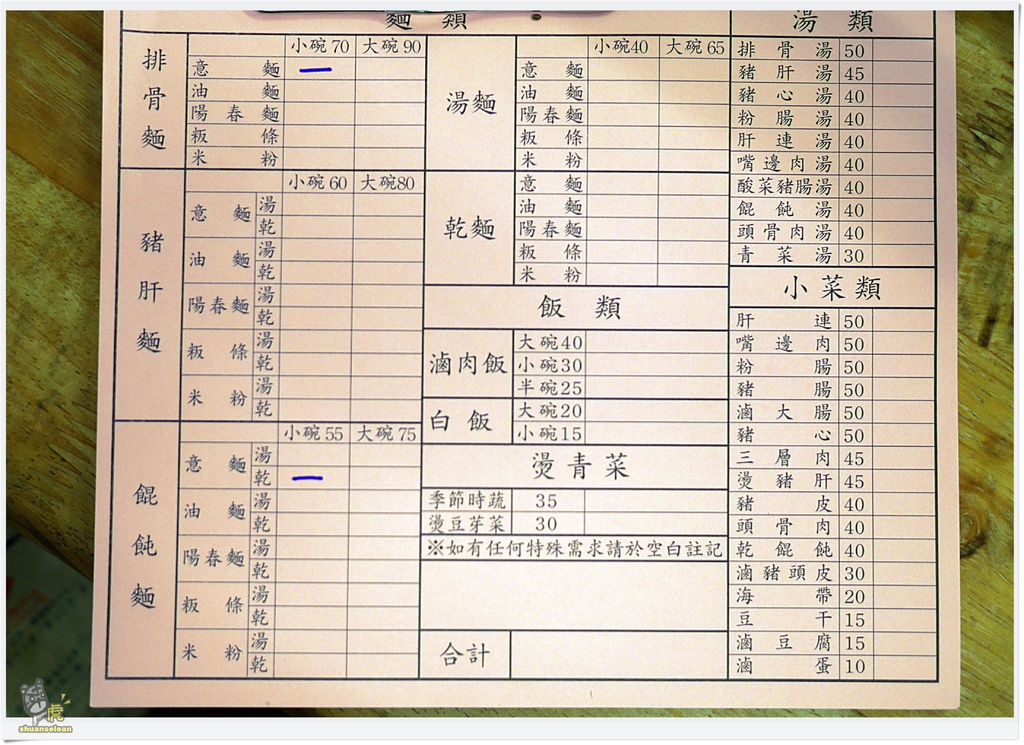 麵 類
排骨麵
小碗70 大碗90
意麵
油麵
陽春麵
粄條
米粉
豬肝麵
小碗60 大碗80
意麵 湯
乾
油麵 湯
乾
陽春麵 湯
乾
粄條 湯
乾
米粉 湯
乾
餛飩麵
小碗55 大碗75
意麵 湯
乾
油麵 湯
乾
陽春麵 湯
乾
粄條 湯
乾
米粉 湯
乾
湯麵
小碗40 大碗65
意麵
油麵
陽春麵
粄條
米粉
乾麵
意麵
油麵
陽春麵
粄條
米粉
飯 類
滷肉飯
大碗40
小碗30
半碗25
白飯
大碗20
小碗15
燙青菜
季節時蔬 35
燙豆芽菜 30
※如有任何特殊需求請於空白註記
合計
湯 類
排骨湯 50
豬肝湯 45
豬心湯 40
粉腸湯 40
肝連湯 40
嘴邊肉湯 40
酸菜豬腸湯 40
餛飩湯 40
頭骨肉湯 40
青菜湯 30
小菜類
肝連 50
嘴邊肉 50
粉腸 50
豬腸 50
滷大腸 50
豬心 50
三層肉 45
燙豬肝 45
豬皮 40
頭骨肉 40
乾餛飩 40
滷豬頭皮 30
海帶 20
豆干 15
滷豆腐 15
滷蛋 10
虎
shuanselean